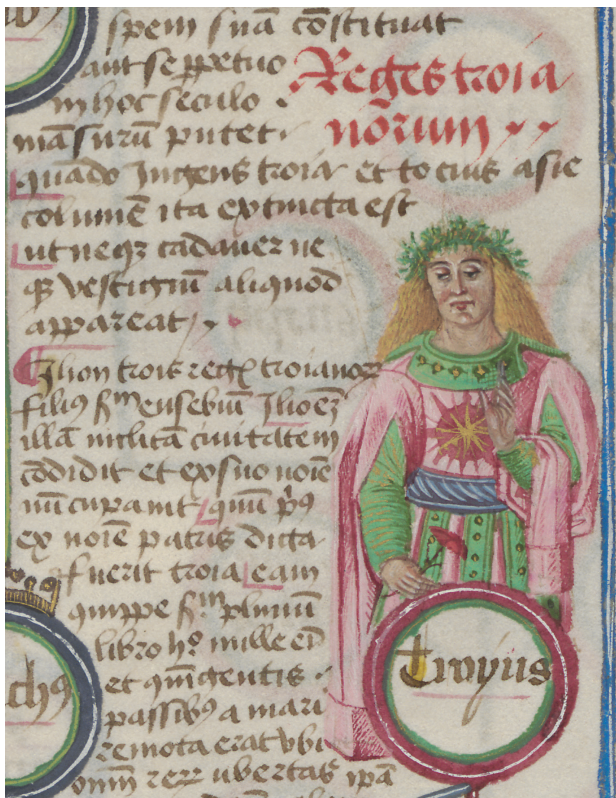 spem suā cōstituat
aut se ꝑpetuo
in hoc seculo
māsurū putet
Reges troia
norum
quādo Jngens troia et tocius asie
columē ita extincta est
ut neqꝫ cadauer ne
qꝫ vestigiū aliquod
appareat
Jlion trois regꝭ troianoꝝ
filiꝰ sᵐ eusebiū Jlioēꝫ
illā inclitā ciuitatem
cōdidit et ex suo noīe
nūcupauit quū pꝰ
ex noīe patris dicta
fuerit troia eam
quippe sᵐ pliniū
libro hꝫ mille et
et quīgentis
passibꝰ a mari
remota erat vbi
oniū reꝝ ubertas ipā
chꝰ
Troyus